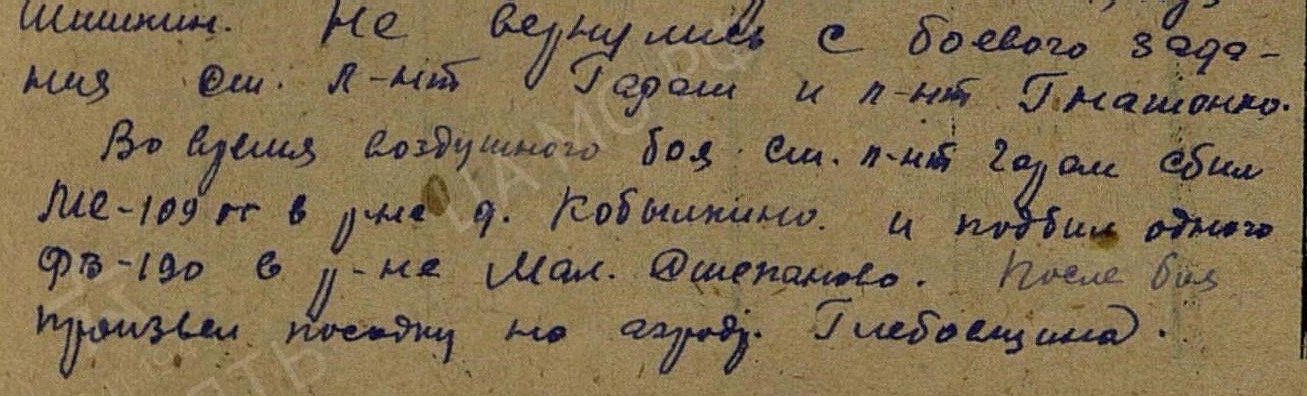 Шишкин. Не вернулись с боевого зада-
ния ст. л-нт Гарам и л-нт Гнатенко.
Во время воздушного боя ст. л-нт Гарам сбил
МЕ-109 в р-не д. Кобылкино. и подбил одного
ФВ-190 в р-не Мал. Степаново. После боя
произвел посадку на аэродр. Глебовщина.